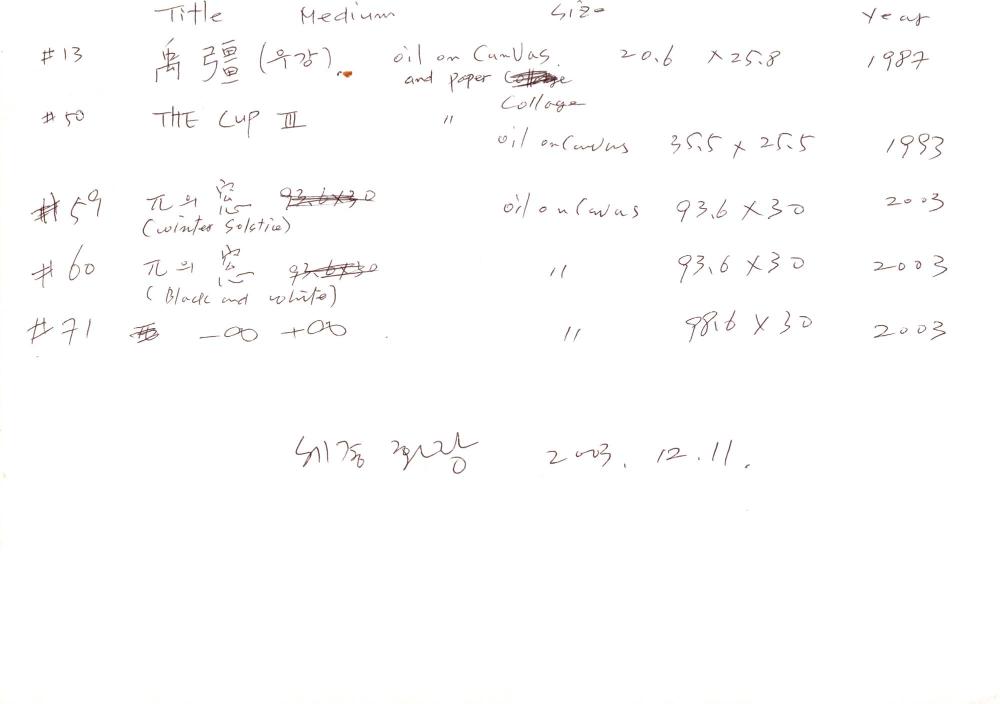 Title Medium Size Year
#13 禹彊 (우강). oil on Canvas. 20.6 × 25.8 1987
and paper
Collage
#50 THE Cup III "
oil on Canvas 35.5 × 25.5 1993
#59 π의 窓 93.6×30 oil on Canvas 93.6 × 30 2003
(winter Solstice)
#60 π의 窓 93.6×30 " 93.6 × 30 2003
(Black and white)
#71 -∞ +∞ " 98.6 × 30 2003
화랑 2003. 12. 11.